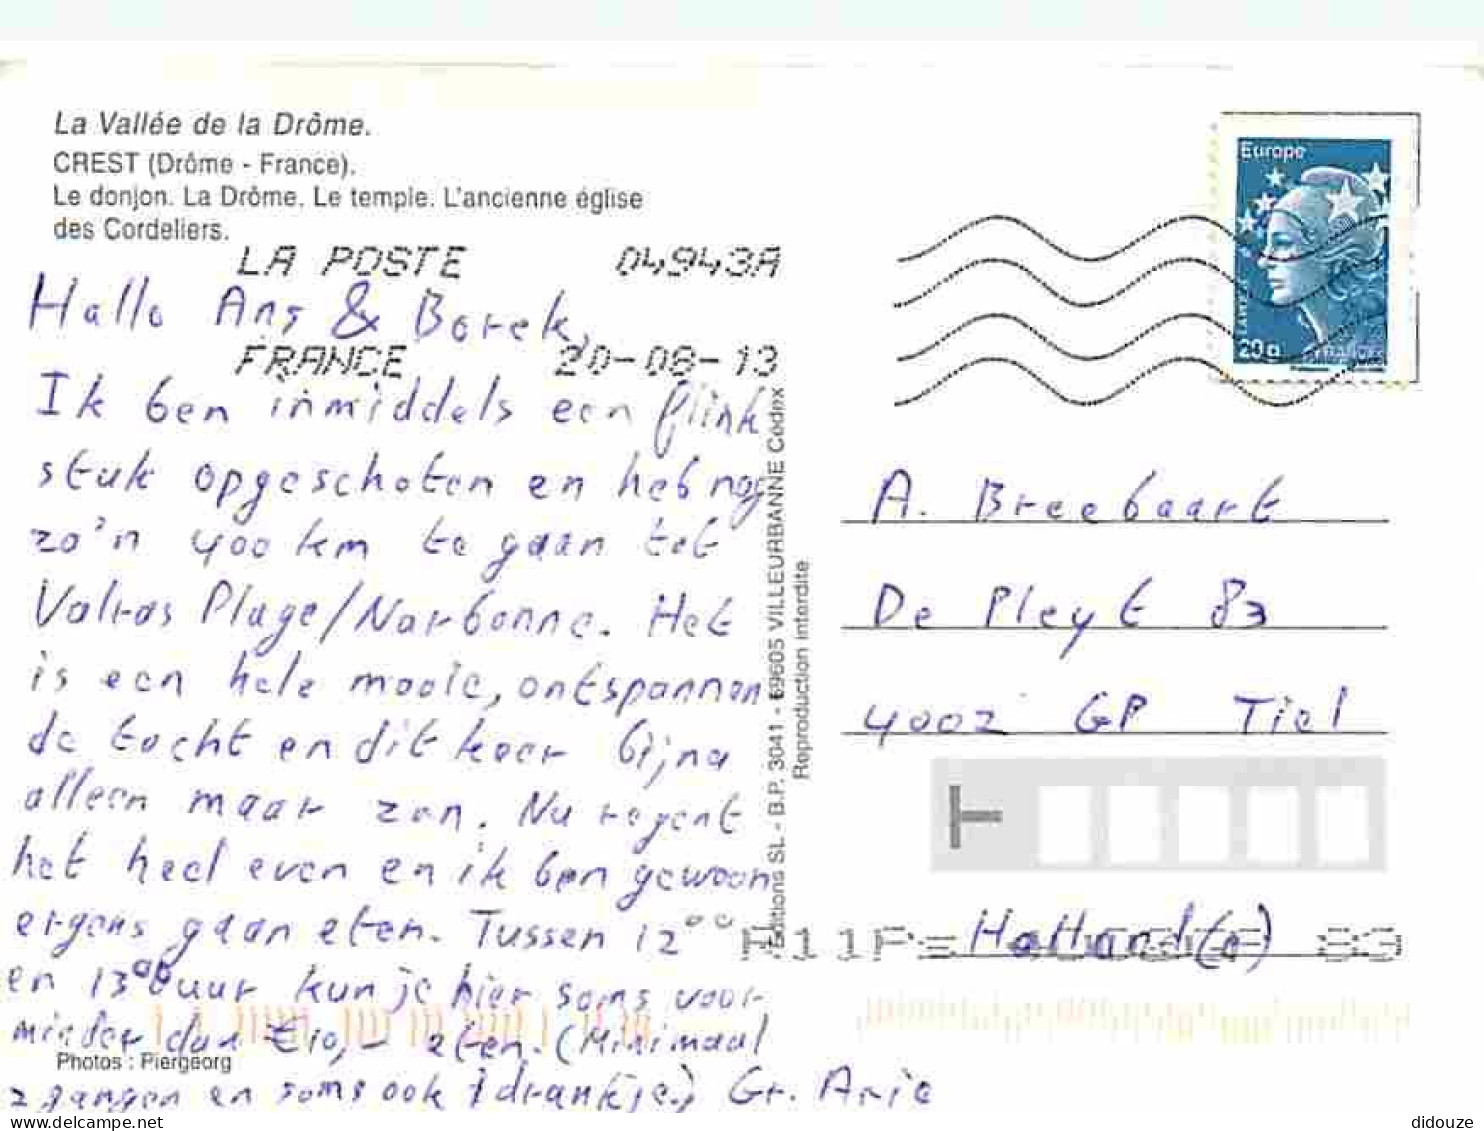 La Vallée de la Drôme.
CREST (Drôme - France).
Le donjon. La Drôme. Le temple. L'ancienne église
des Cordeliers.
LA POSTE 04943A
FRANCE 20-08-13
Hallo Ans & Borek,
Ik ben inmiddels een flink
stuk opgeschoten en heb nog
zo'n 400 km te gaan tot
Valras Plage/Narbonne. Het
is een hele mooie, ontspannen
de tocht en dit keer bijna
alleen maar zon. Nu regent
het heel even en ik ben gewoon
ergens gaan eten. Tussen 12⁰⁰
en 13⁰⁰ uur kun je hier soms voor
minder dan €10,- eten. (Minimaal
2 gangen en soms ook 1 drankje.) Gr. Arie
Photos : Piergeorg
Editions SL - B.P. 3041 - 69605 VILLEURBANNE Cédex
Reproduction interdite
Europe
20g
A. Breebaart
De Pleyt 83
4002 GP Tiel
Holland(e)
delcampe.net
didouze